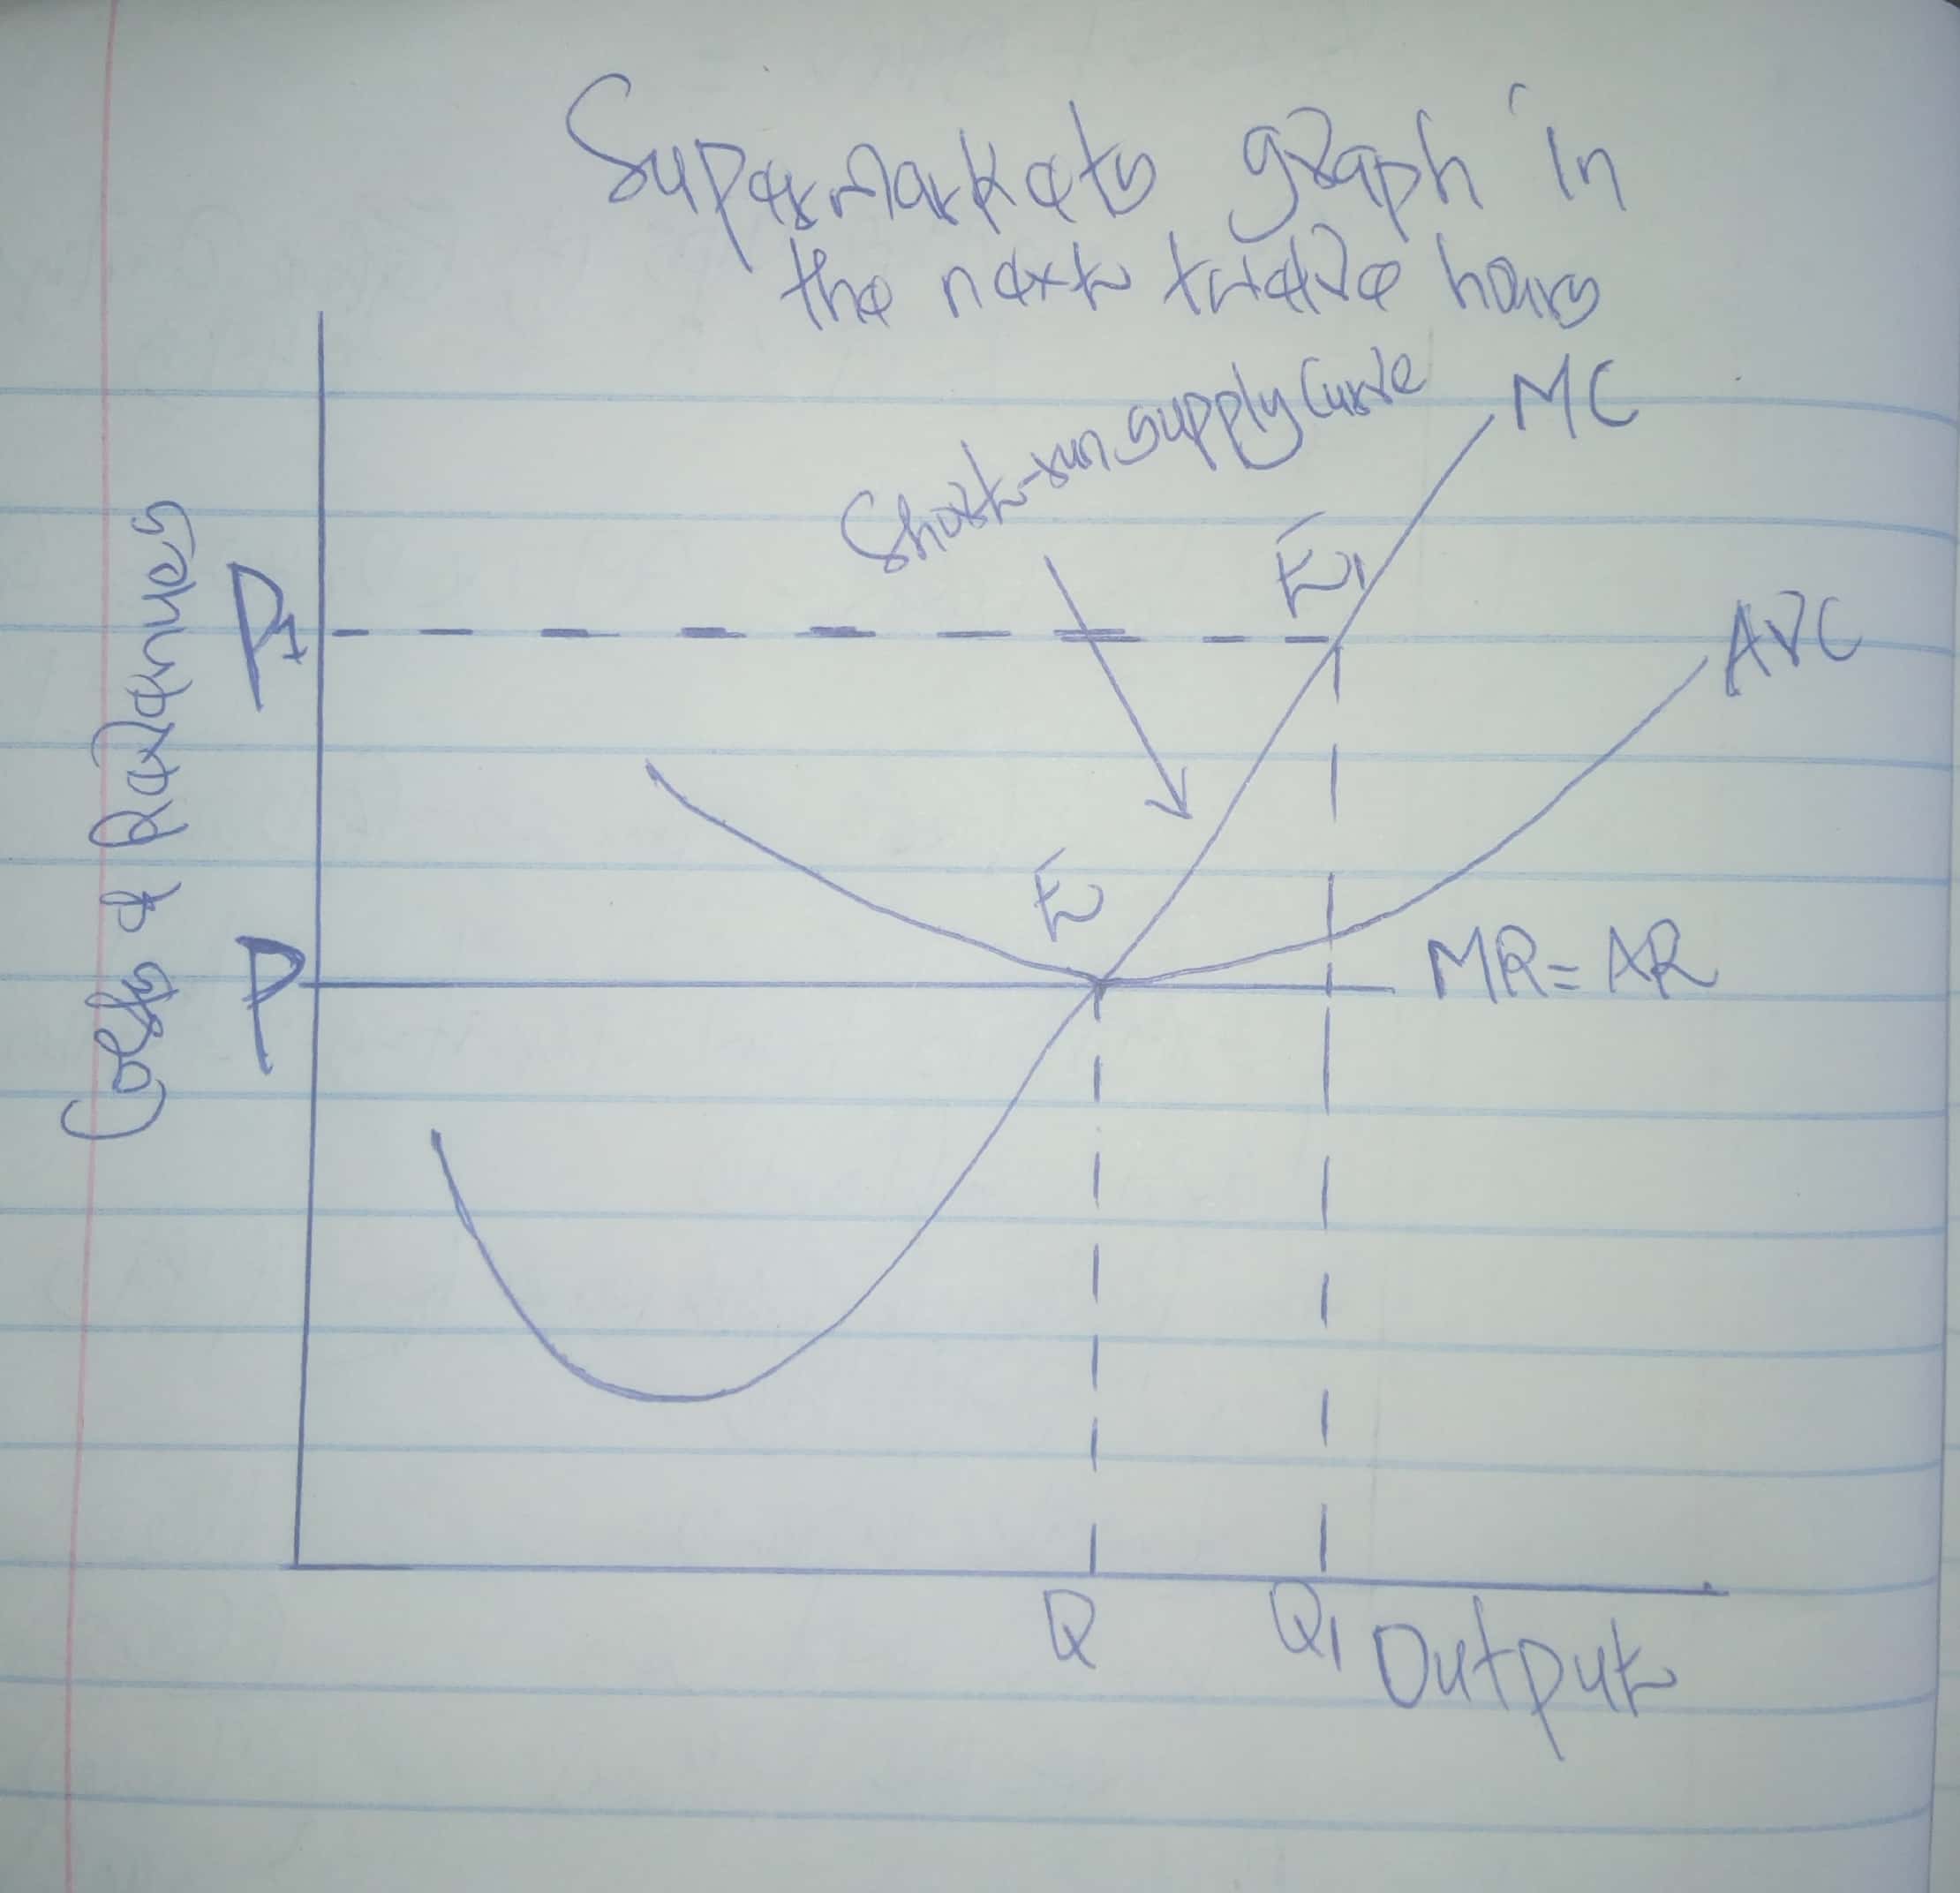 Supermarkets graph in
the next twelve hours
Short-run supply curve
MC
E1
P1
AVC
Costs & Revenues
E
P
MR = AR
Q
Q1
Output